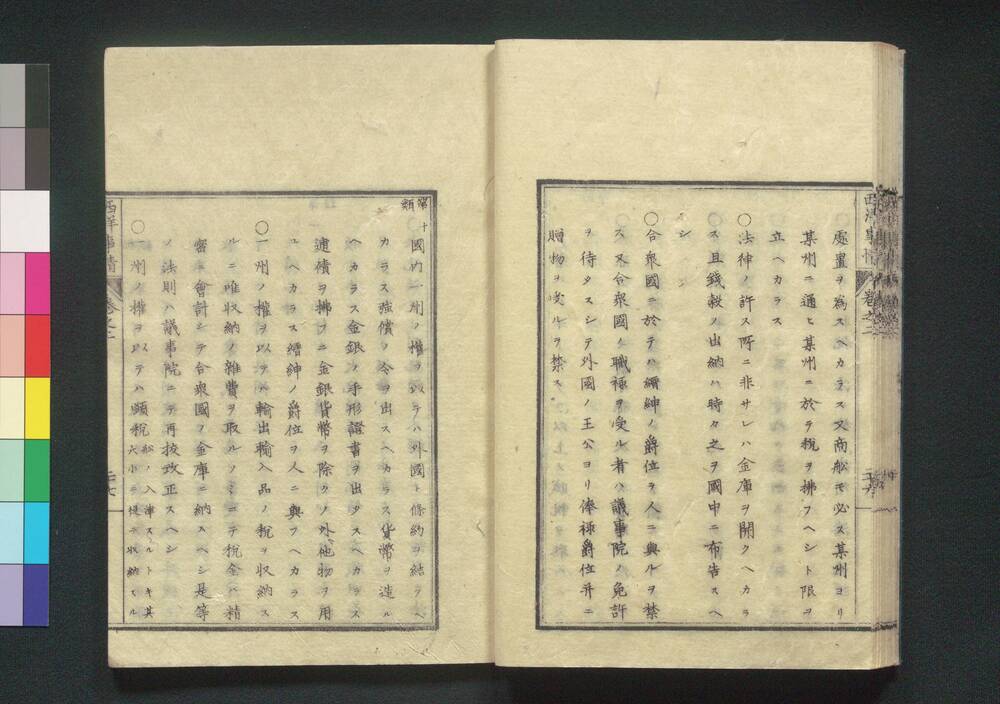 處置ヲ爲スヘカラス又商舩モ必ス某州ヨリ
某州ニ通ヒ某州ニ於テ税ヲ拂フヘシト限ヲ
立ヘカラス
○法律ノ許ス所ニ非サレハ金庫ヲ開クヘカラ
ス且錢穀ノ出納ハ時々之ヲ國中ニ布告スヘ
シ
○合衆國ニ於テハ縉紳ノ爵位ヲ人ニ與ルヲ禁
ス又合衆國ノ職禄ヲ受ル者ハ議事院ノ免許
ヲ待タスシテ外國ノ王公ヨリ俸禄爵位并ニ
贈物ヲ受ルヲ禁ス
西洋事情 卷之二
第十類
國内一州ノ權ヲ以テハ外國ト條約ヲ結フヘ
カラス強償ノ令ヲ出スヘカラス貨幣ヲ造ル
ヘカラス金銀ノ手形證書ヲ出タスヘカラス
逋債ヲ拂フニ金銀貨幣ヲ除クノ外他物ヲ用
ユヘカラス縉紳ノ爵位ヲ人ニ與フヘカラス
○一州ノ權ヲ以テハ輸出輸入品ノ税ヲ収納ス
ルニ唯収納ノ雜費ヲ取ルノミニテ税金ハ精
密ニ會計シテ合衆國ノ金庫ニ納スヘシ是等
ノ法則ハ議事院ニテ再挍改正スヘシ
○一州ノ權ヲ以テハ噸税舩ノ入津スルトキ其大小ニ從テ収納スル
西洋事情 卷之二 二十七